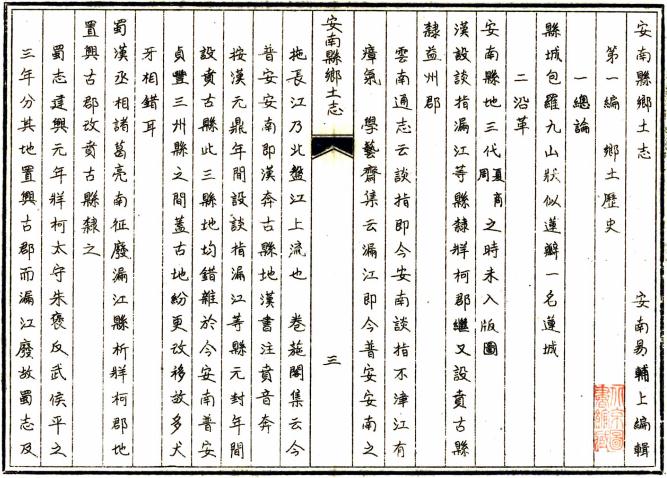 安南縣鄉土志
安南易輔上編輯
第一編 鄉土歷史
一總論
縣城包羅九山狀似蓮瓣一名蓮城
二沿革
安南縣地三代夏商周之時未入版圖
漢設談指漏江等縣隸牂柯郡繼又設賁古縣
隸益州郡
雲南通志云談指即今安南談指不津江有
瘴氣 學藝齋集云漏江即今普安安南之
安南縣鄉土志
三
拖長江乃北盤江上流也 卷葹閣集云今
普安安南即漢奔古縣地漢書注賁音奔
按漢元鼎年間設談指漏江等縣元封年間
設賁古縣此三縣地均錯雜於今安南普安
貞豐三州縣之間蓋古地紛更改移故多犬
牙相錯耳
蜀漢丞相諸葛亮南征廢漏江縣析牂柯郡地
置興古郡改賁古縣隸之
蜀志建興元年牂柯太守朱褒反武侯平之
三年分其地置興古郡而漏江廢故蜀志及